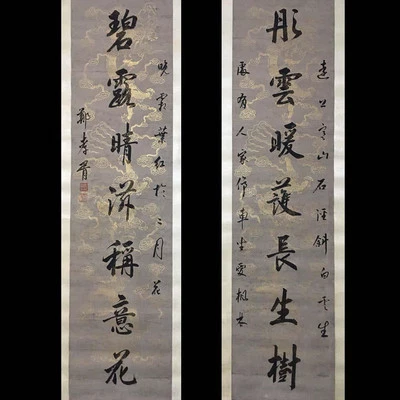 遠上寒山石徑斜白雲生
彤雲暖護長生樹
處有人家停車坐愛楓林
晚霜葉紅於二月花
碧露晴滋稱意花
鄭孝胥